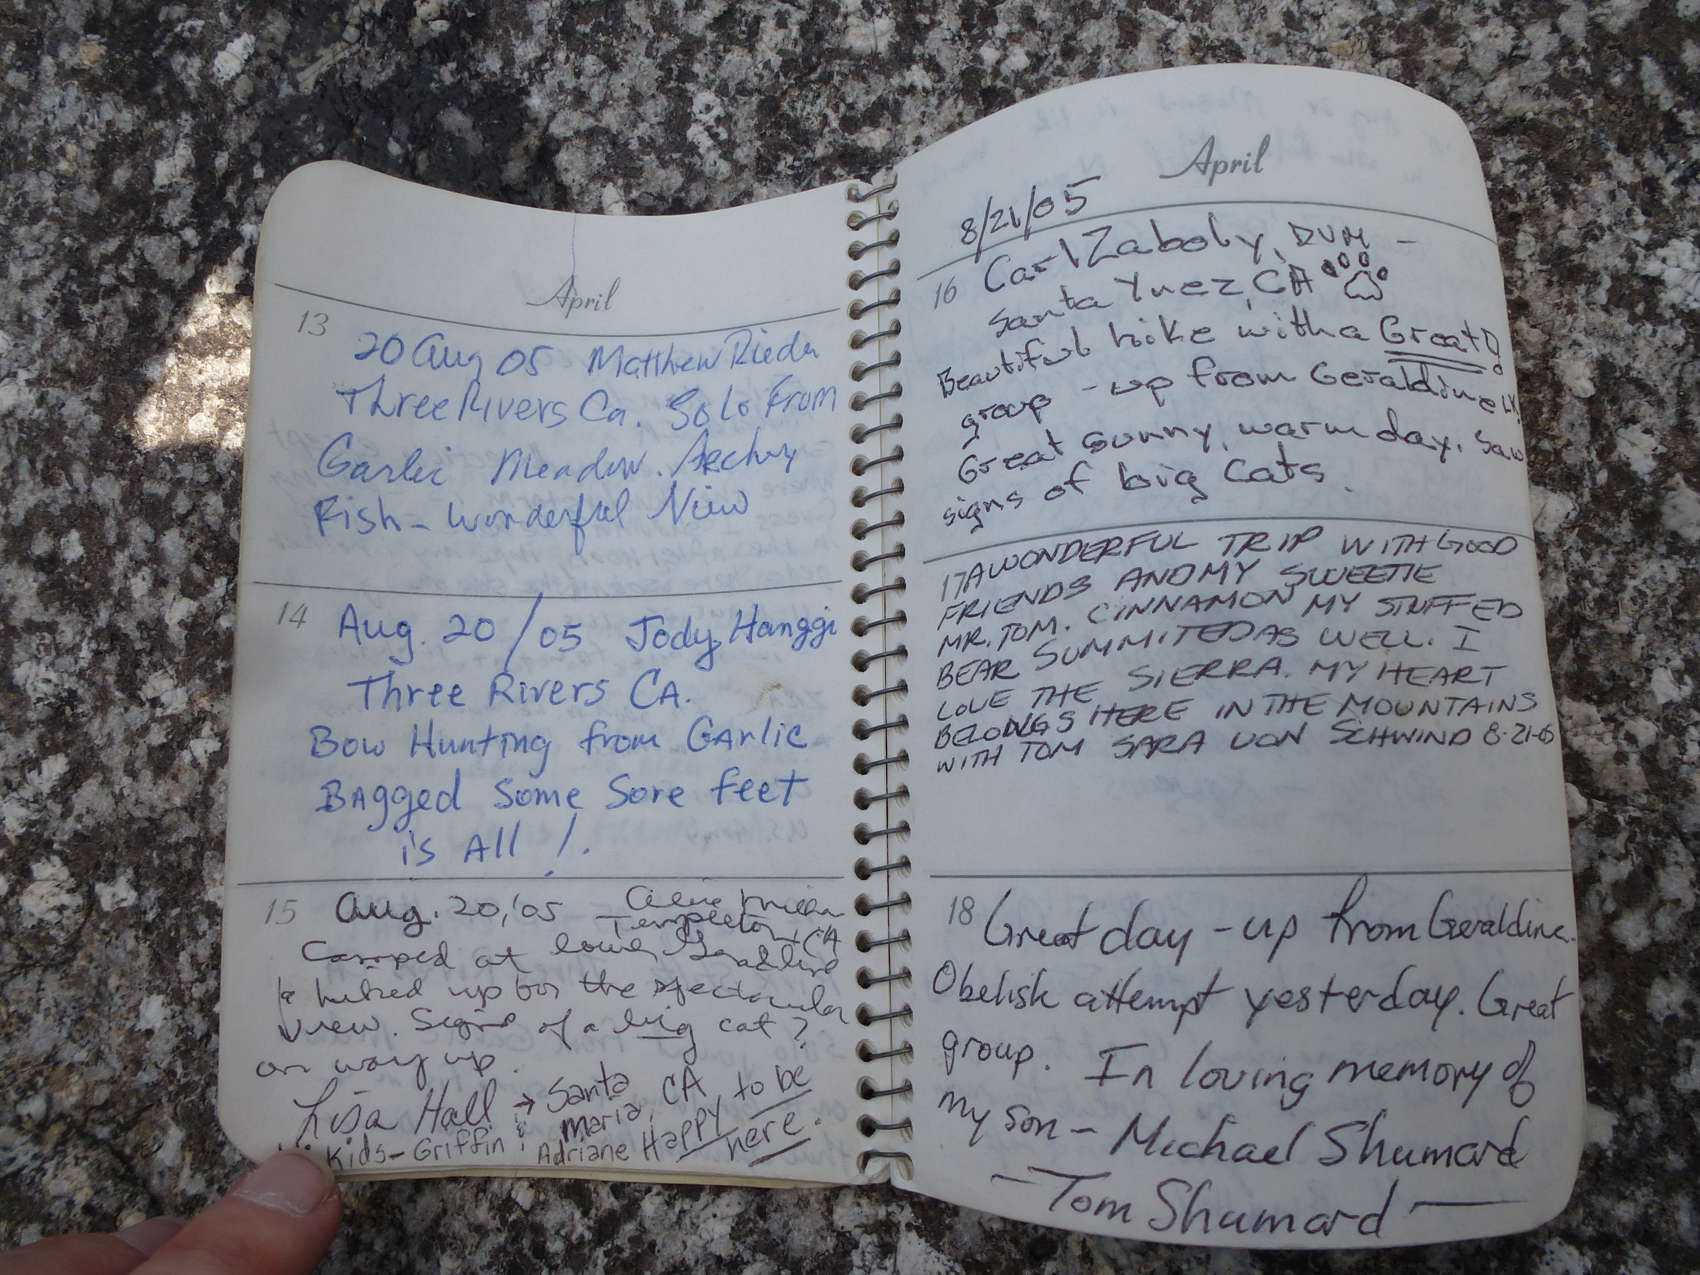 April
13
20 Aug 05 Matthew Rieder
Three Rivers Ca. Solo From
Garlic Meadow. Archery
Fish - Wonderful View
14
Aug. 20/05 Jody Hanggi
Three Rivers CA.
Bow Hunting from GArlic
BAgged Some Sore feet
is All!.
15
Aug. 20,'05
Templeton, CA
Camped at lower Geraldine
& hiked up for the spectacular
view. Signs of a big cat?
on way up.
Lisa Hall → Santa Maria, CA
Kids- Griffin & Adriane Happy to be here.
April
8/21/05
16
Carl Zaboly, DVM -
Santa Ynez, CA
Beautiful hike with a Great!
group - up from Geraldine Lk!
Great sunny, warm day. Saw
signs of big cats.
17 A WONDERFUL TRIP WITH GOOD
FRIENDS AND MY SWEETIE
MR. TOM. CINNAMON MY STUFFED
BEAR SUMMITED AS WELL. I
LOVE THE SIERRA. MY HEART
BELONGS HERE IN THE MOUNTAINS
WITH TOM SARA VON SCHWIND 8-21-05
18
Great day - up from Geraldine.
Obelisk attempt yesterday. Great
group. In loving memory of
my son - Michael Shumard
- Tom Shumard -